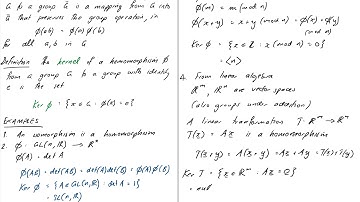 G to a group G is a mapping from G into
that preserves the group operation, ie
φ(ab) = φ(a)φ(b)
for all a,b in G
Definition the kernel of a homomorphism φ
from a group G to a group with identity
e is the set
Ker φ = {x ∈ G : φ(x) = e}
EXAMPLES
1. An isomorphism is a homomorphism
2. φ: GL(n,R) → R*
φ(A) = det A
φ(AB) = det(AB) = det(A)det(B) = φ(A)φ(B)
Ker φ = {A ∈ GL(n,R) : det A = 1}
= SL(n,R)
φ(m) = x (mod n)
φ(x+y) = x+y (mod n) = φ(x) + φ(y)
(mod n)
Ker φ = {x ∈ Z : x (mod n) = 0}
= <n>
4. From linear algebra
R^m, R^n are vector spaces
(also groups under addition)
A linear transformation T: R^m → R^n
T(x) = Ax is a homomorphism
T(x+y) = A(x+y) = Ax + Ay = T(x)+T(y)
Ker T = {x ∈ R^m : Ax = 0}
= null